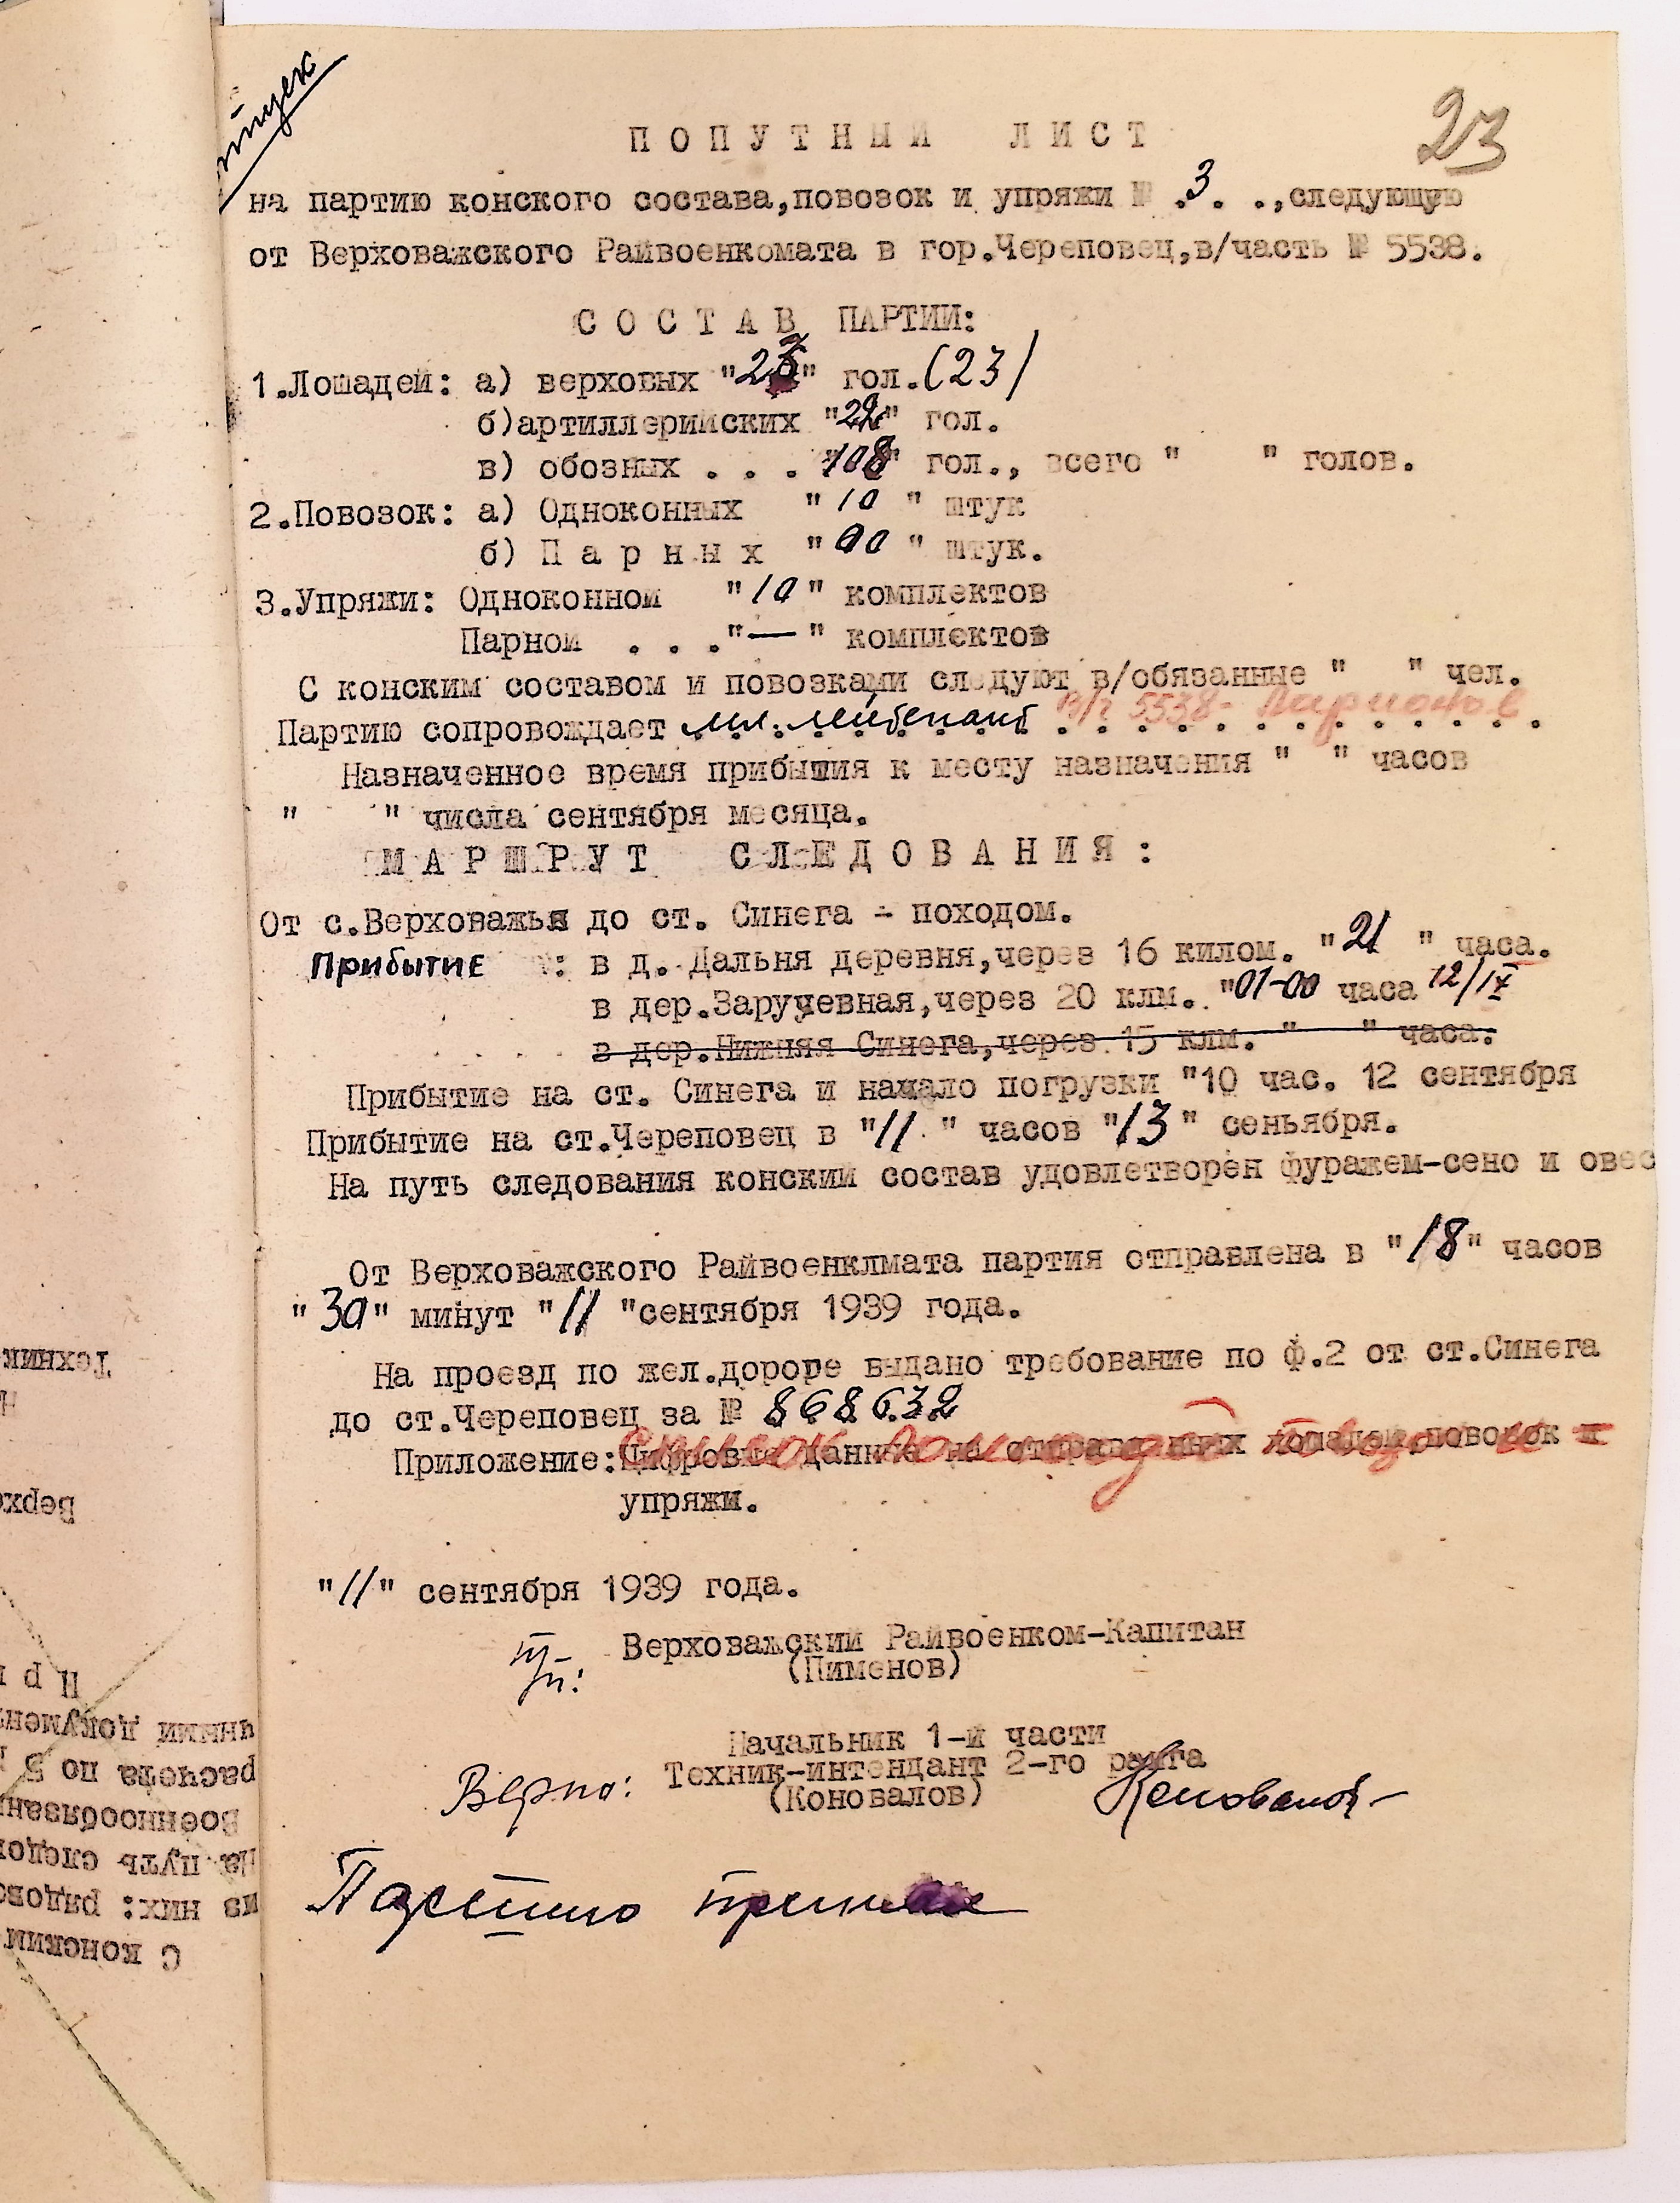 23
П О П У Т Н Ы Й Л И С Т
на партию конского состава,повозок и упряжи № .3. .,следующую
от Верховажского Райвоенкомата в гор.Череповец,в/часть № 5538.
С О С Т А В ПАРТИИ:
1.Лошадей: а) верховых "23" гол.(23)
б)артиллерийских "22" гол.
в) обозных . . . "108" гол., всего " " голов.
2.Повозок: а) Одноконных "10" штук
б) П а р н ы х "00" штук.
3.Упряжи: Одноконной "10" комплектов
Парной . . ."—" комплектов
С конским составом и повозками следуют в/обязанные " " чел.
Партию сопровождает мл. лейтенант в/ч 5538- Ларионов
Назначенное время прибытия к месту назначения " " часов
" " числа сентября месяца.
М А Р Ш Р У Т С Л Е Д О В А Н И Я :
От с.Верховажья до ст. Синега - походом.
Прибытие : в д. Дальня деревня,через 16 килом. "21 " часа.
в дер.Заручевная,через 20 клм. "01-00 часа 12/IX
в дер.Нижняя Синега,через 15 клм. " " часа.
Прибытие на ст. Синега и начало погрузки "10 час. 12 сентября
Прибытие на ст.Череповец в "11 " часов "13" сеньября.
На путь следования конский состав удовлетворен фуражем-сено и овес
От Верховажского Райвоенклмата партия отправлена в "18" часов
"30" минут "11 "сентября 1939 года.
На проезд по жел.дороге выдано требование по Ф.2 от ст.Синега
до ст.Череповец за № 868632
Приложение:Цифровые данные на отправленных лошадей повозок и
Список лошадей повозок и
упряжи.
"11" сентября 1939 года.
п/п: Верховажский Райвоенком-Капитан
(Пименов)
Начальник 1-й части
Верно: Техник-интендант 2-го ранга
(Коновалов) Коновалов
Партию принял